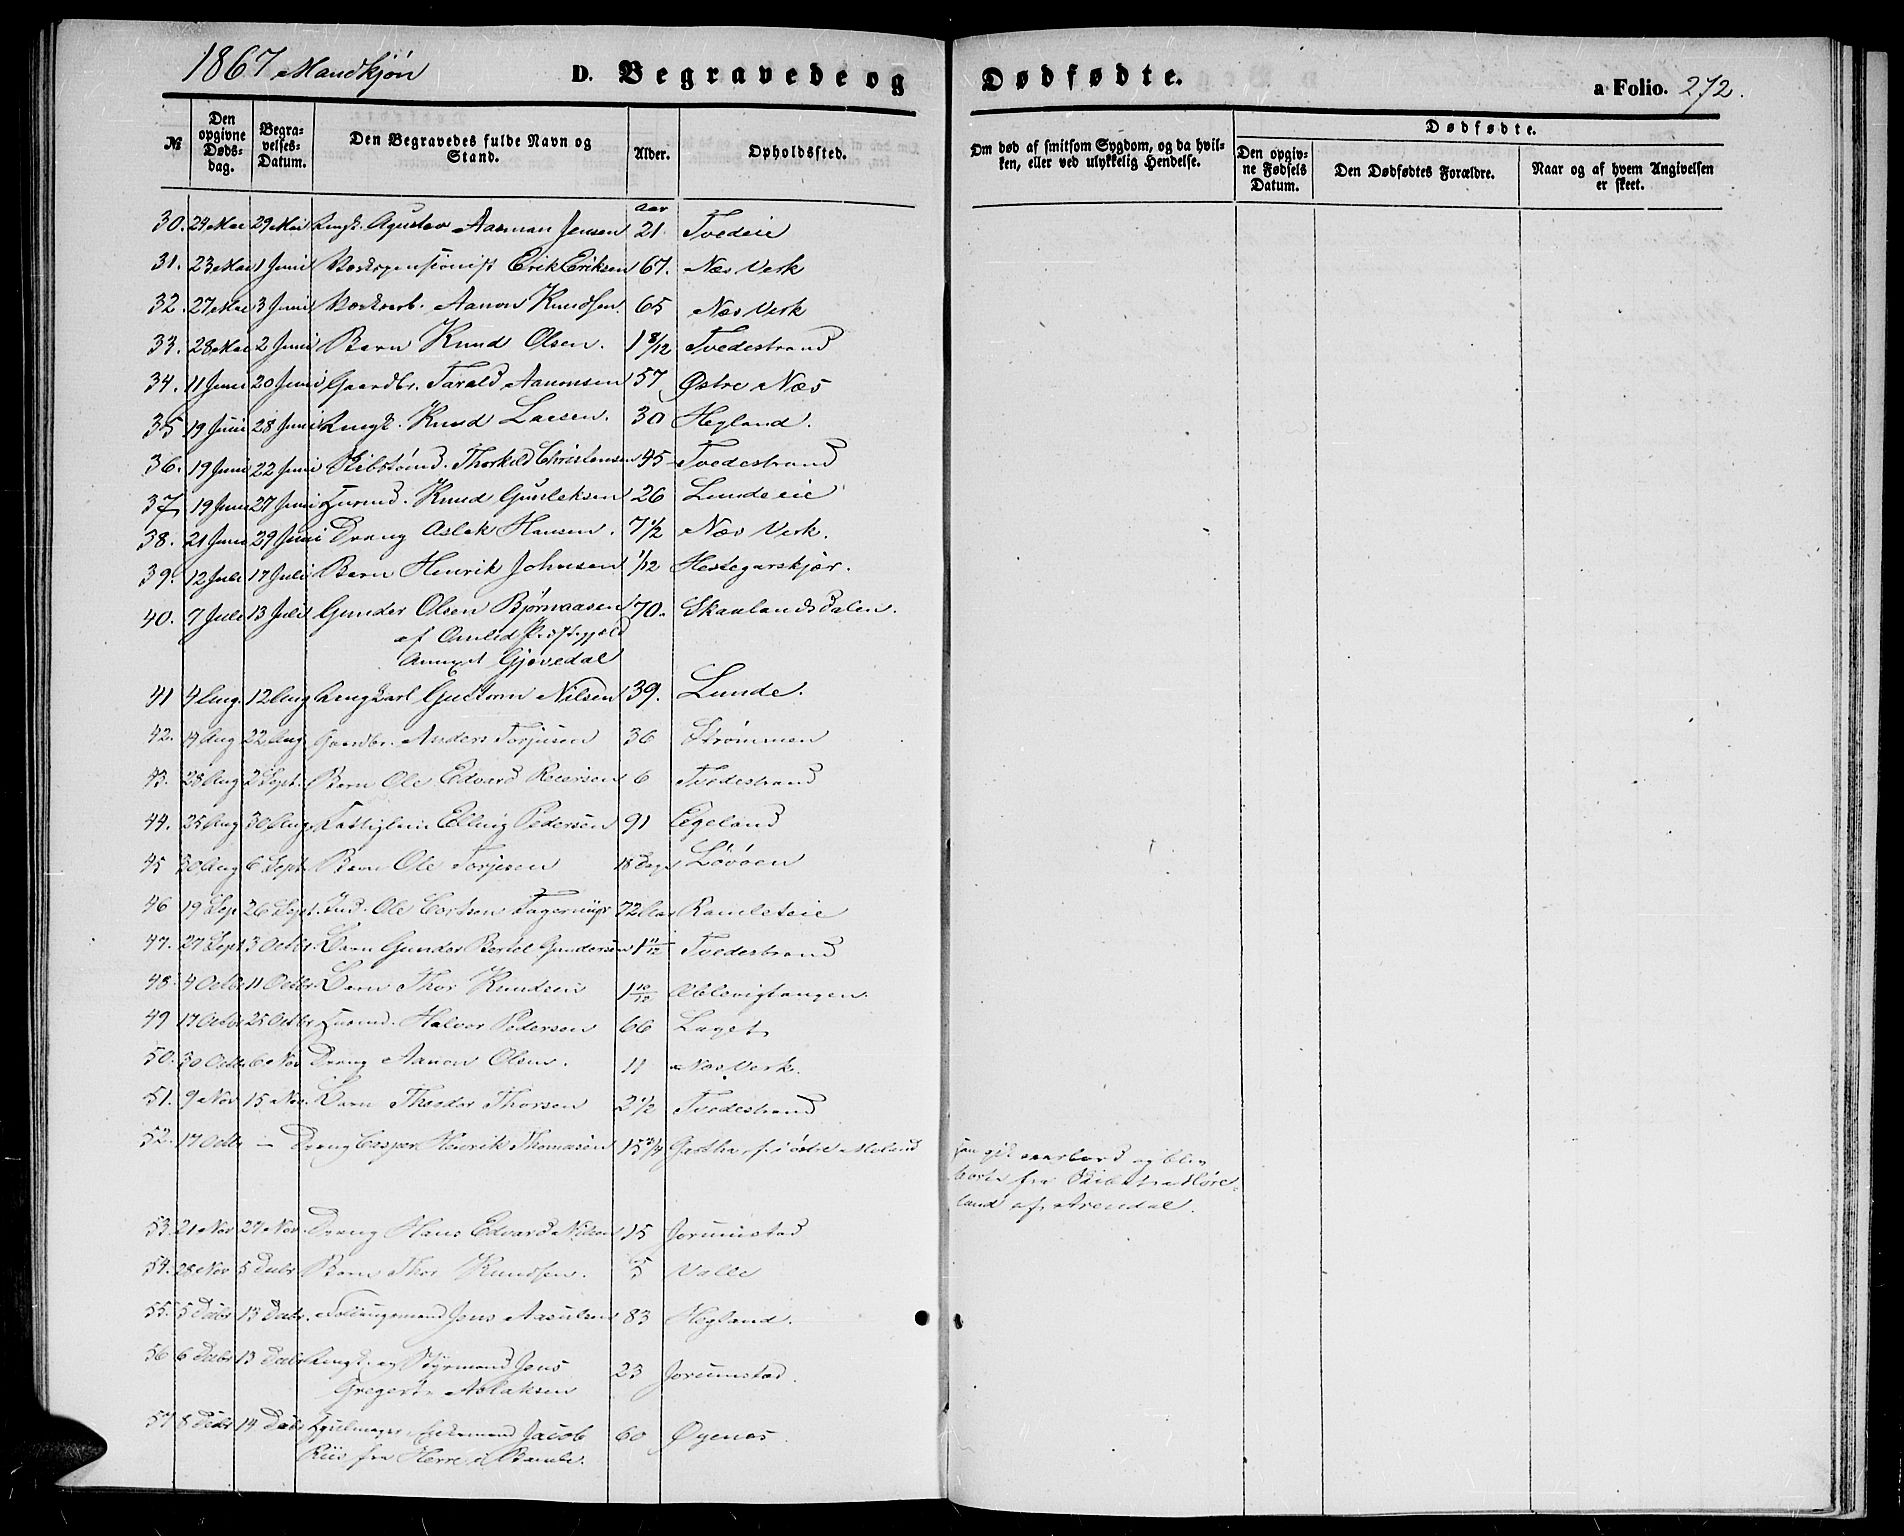 1867 Mandkjön
D. Begravede og Dødfødte.
a Folio. 272.
№
Den opgivne Døds-dag.
Begra-velses-Datum.
Den Begravedes fulde Navn og Stand.
Alder.
Opholdssted.
Om død af smitsom Sygdom, og da hvil-ken, eller ved ulykkelig Hendelse.
Dødfødte.
Den opgiv-ne Fødsels Datum.
Den Dødfødtes Forældre.
Naar og af hvem Angivelsen er skeet.
Aar
30. 24 Mai 29 Mai Ungk. Agustav Aasman Jensen 21. Tvedeie
31. 23 Mai 1 Juni Erik Eriksen 67. Næs Verk
32. 27 Mai 3 Juni Aanon Knudsen. 65 Næs Verk
33. 28 Mai 2 Juni Barn Knud Olsen. 1 8/12 Tvedestrand
34. 11 Juni 20 Juni Gaardbr. Tarald Aanonsen 57 Østre Næs
35 19 Juni 28 Juni Ungk. Knud Larsen. 30 Hegland.
36. 19 Juni 22 Juni Skibstømd. Thorkild Christensen 45 Tvedestrand
37 19 Juni 27 Juni Husmd. Knud Gunleksen 26 Lunde eie
38. 21 Juni 29 Juni Dreng Aslak Hansen. 7 1/2 Næs Verk.
39. 12 Juli 17 Juli Barn Henrik Johnsen 1/12 Hestegarskjær.
40. 7 Juli 13 Juli Gunder Olsen Bjørnaasen 70. Skaalandsdalen.
af Omlid Præstegjæld
Annext Gjøvedal
41 4 Aug. 12 Aug Ungkarl Guttorm Nilsen 39. Lunde.
42. 14 Aug 22 Aug. Gaardbr. Anders Torjusen 36 Strømmen
43. 28 Aug 2 Sept. Barn Ole Edvard Reiersen 6 Tvedestrand
44. 25 Aug 30 Aug. Fattiglem Elling Pedersen 91 Egeland
45 30 Aug 6 Sept. Barn Ole Torjesen 18 Dage Løvøen
46 19 Sep 26 Sept. Ind. Ole Fagermyr 72 Aar Ramleteie
47. 27 Sept 3 Octbr. Barn Gunder Bertel Gundersen 1 11/12 Tvedestrand
48. 4 Octbr 11 Octbr Barn Thor Knudsen 1 10/12 Æblevigtangen.
49 17 Octbr 25 Octbr Husmd. Halvor Pedersen 66 Laget
50. 30 Octb. 6 Nov Dreng Aanon Olsen. 11 Næs Verk.
51. 9 Nov 15 Nov. Barn Theodor Thorsen 2 1/2 Tvedestrand
52. 17 Octb — Dreng Casper Henrik Thomassen 15 Østre Moland
gik overbord og blev
borte fra Skibet
land af Arendal.
53. 21 Nov 27 Nov. Dreng Hans Edvard Nilsen 15 Jorunstad
54. 28 Nov 5 Decbr Barn Thor Knudsen. 5 Valle
55. 5 Decbr 13 Decbr. Jens Aasulsen 83 Hegland.
56 6 Decbr 13 Decbr Ungk. og Styrmand Jens
Gregers. Aslaksen 23 Jorunstad.
57 8 Decbr 14 Decbr Jacob
Riis fra Herre i Bamle. 60 Øyenes.